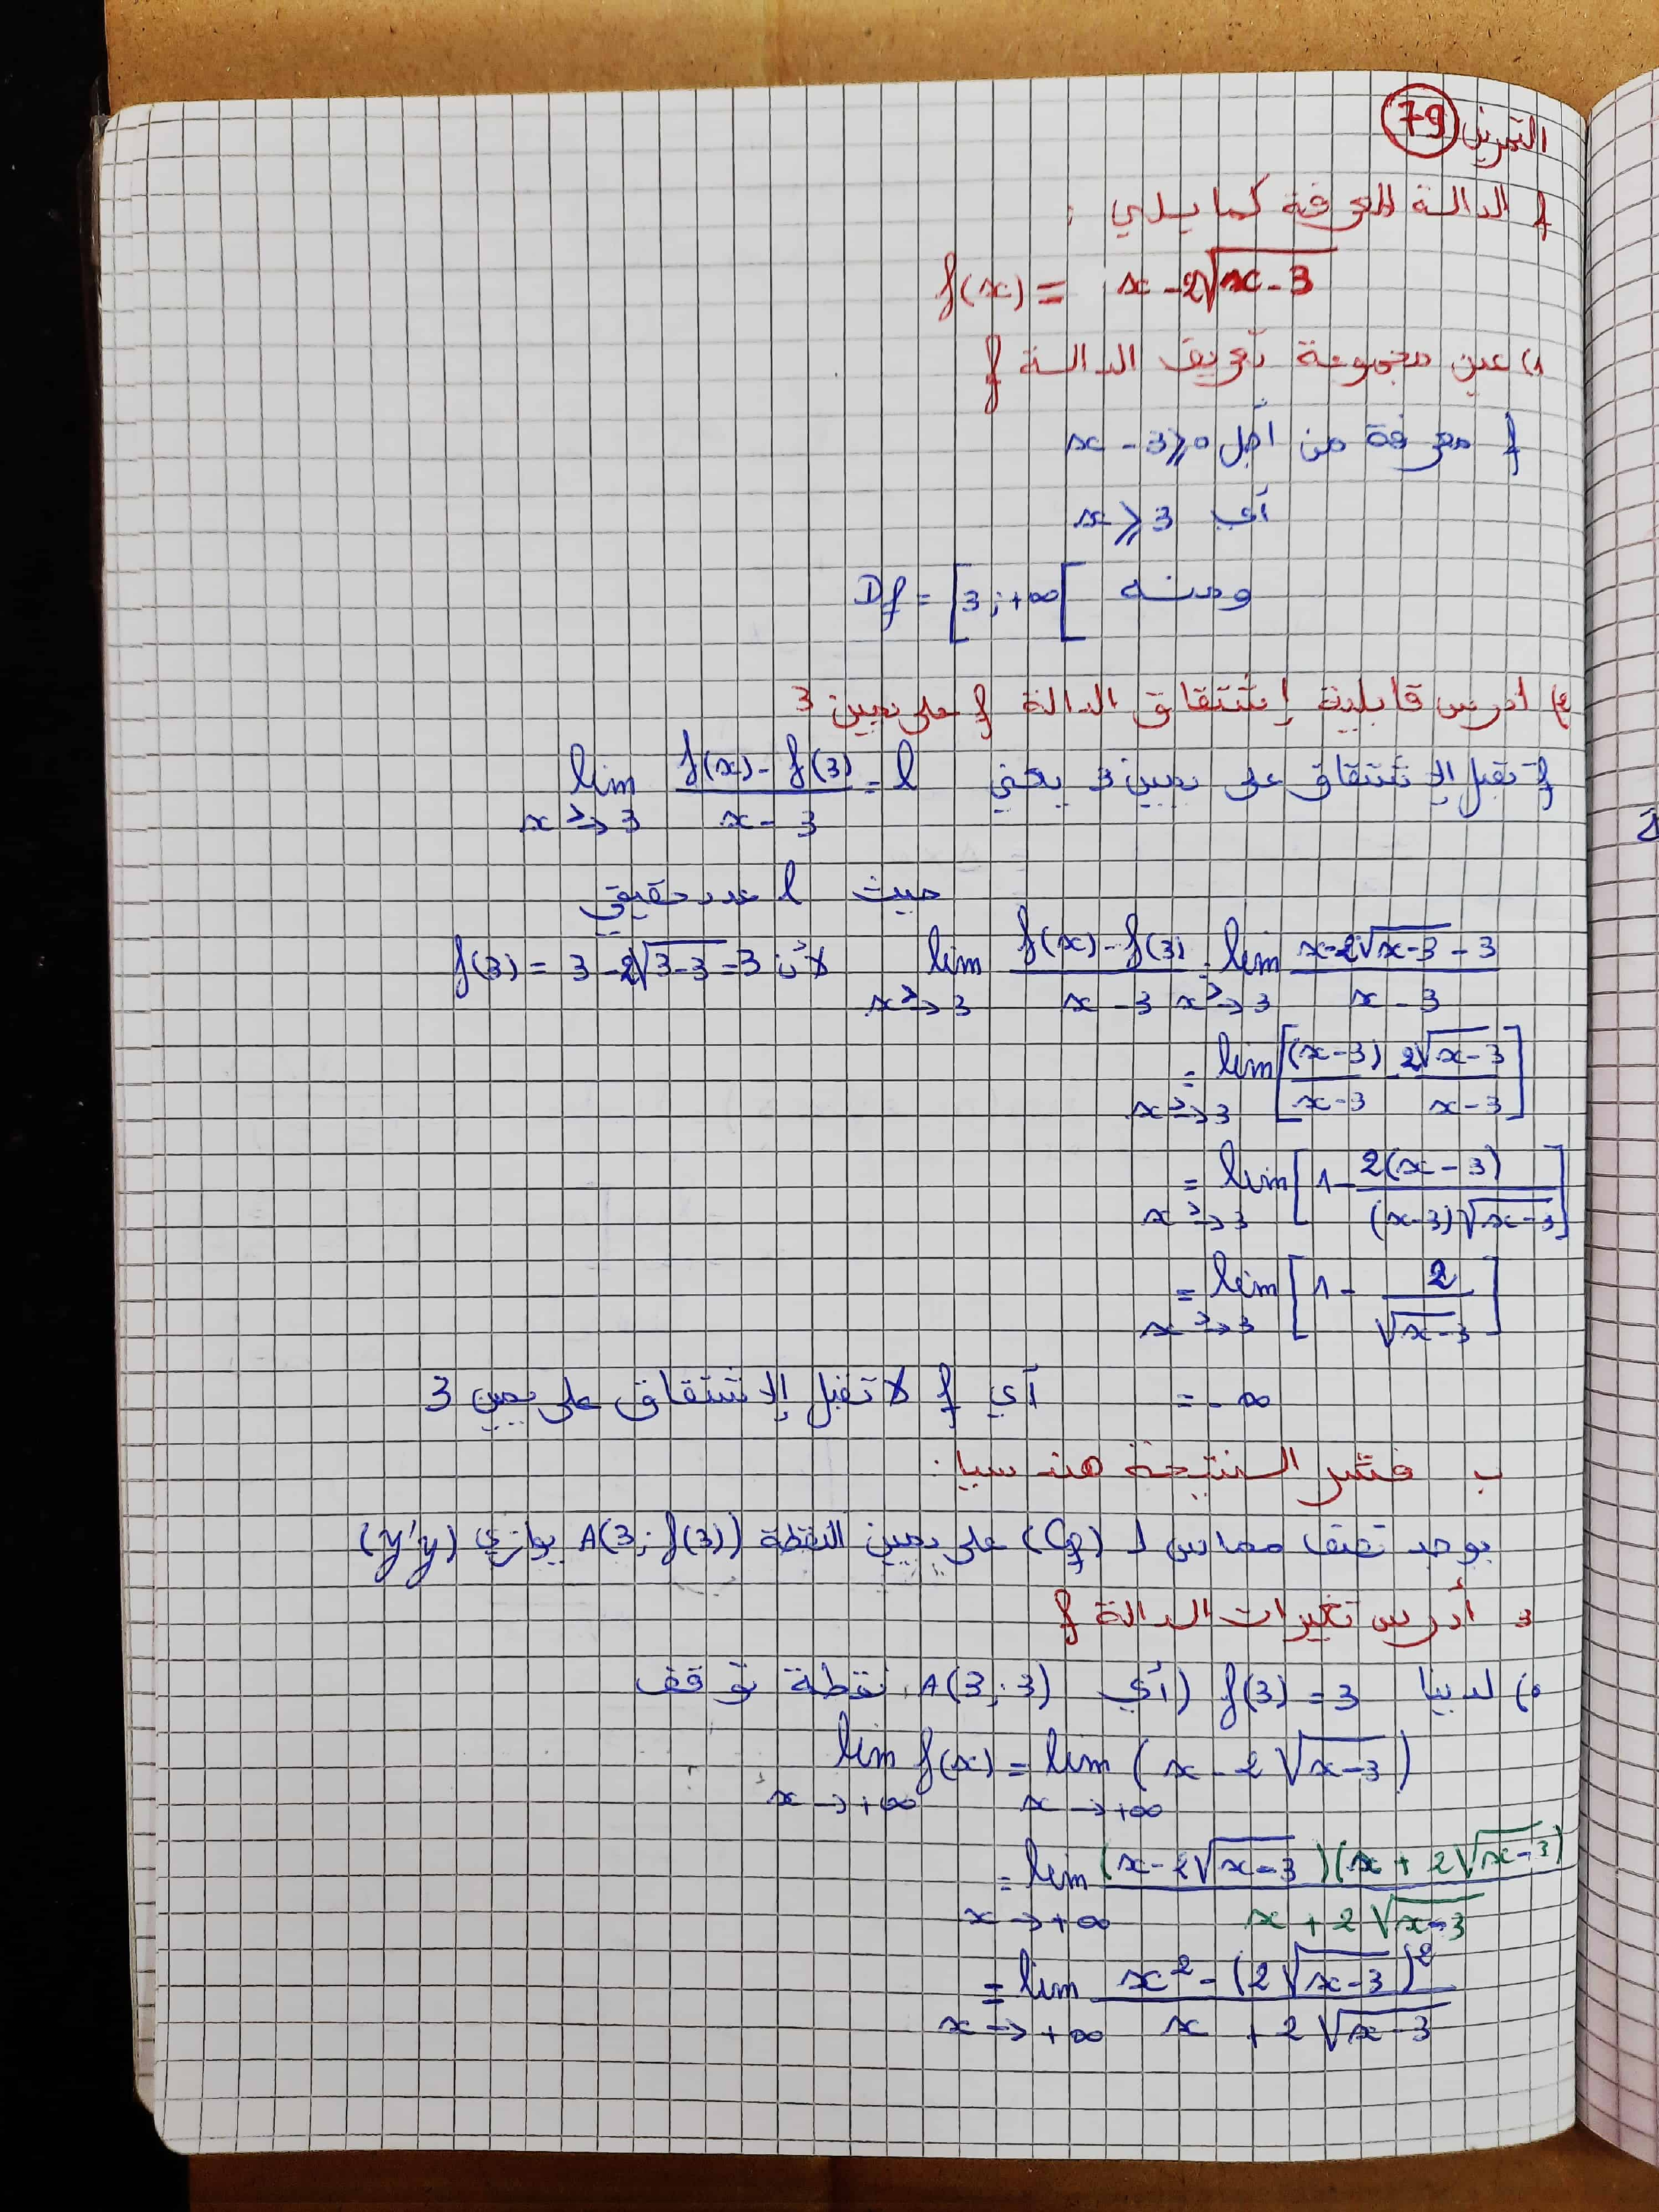 التمرين 79
f الدالة المعرفة كما يلي :
f(x) = x - 2√(x-3)
1) عين مجموعة تعريف الدالة f
f معرفة من أجل x - 3 ⩾ 0
أي x ⩾ 3
ومنه Df = [3 ; +∞[
2) ادرس قابلية إشتقاق الدالة f على يمين 3
f تقبل الإشتقاق على يمين 3 يعني lim_{x→^{>}3} (f(x) - f(3))/(x - 3) = l
حيث l عدد حقيقي
lim_{x→^{>}3} (f(x) - f(3))/(x - 3) = lim_{x→^{>}3} (x - 2√(x-3) - 3)/(x - 3) لأن f(3) = 3 - 2√(3-3) = 3
= lim_{x→^{>}3} [(x-3)/(x-3) - 2√(x-3)/(x-3)]
= lim_{x→^{>}3} [1 - 2(x-3)/((x-3)√(x-3))]
= lim_{x→^{>}3} [1 - 2/√(x-3)]
= -∞ أي f لا تقبل الإشتقاق على يمين 3
ب فسّر النتيجة هندسيا :
يوجد نصف مماس لـ (Cf) على يمين النقطة A(3 ; f(3)) يوازي (y'y)
3 أدرس تغيرات الدالة f
•) لدينا f(3) = 3 (أي A(3 ; 3) نقطة توقف
lim_{x→+∞} f(x) = lim_{x→+∞} (x - 2√(x-3))
= lim_{x→+∞} (x - 2√(x-3))(x + 2√(x-3))/(x + 2√(x-3))
= lim_{x→+∞} (x² - (2√(x-3))²)/(x + 2√(x-3))